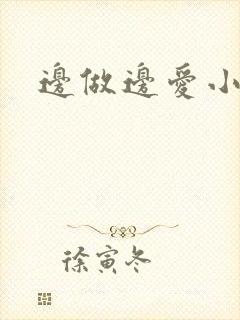 邊做邊愛小
徐寅冬